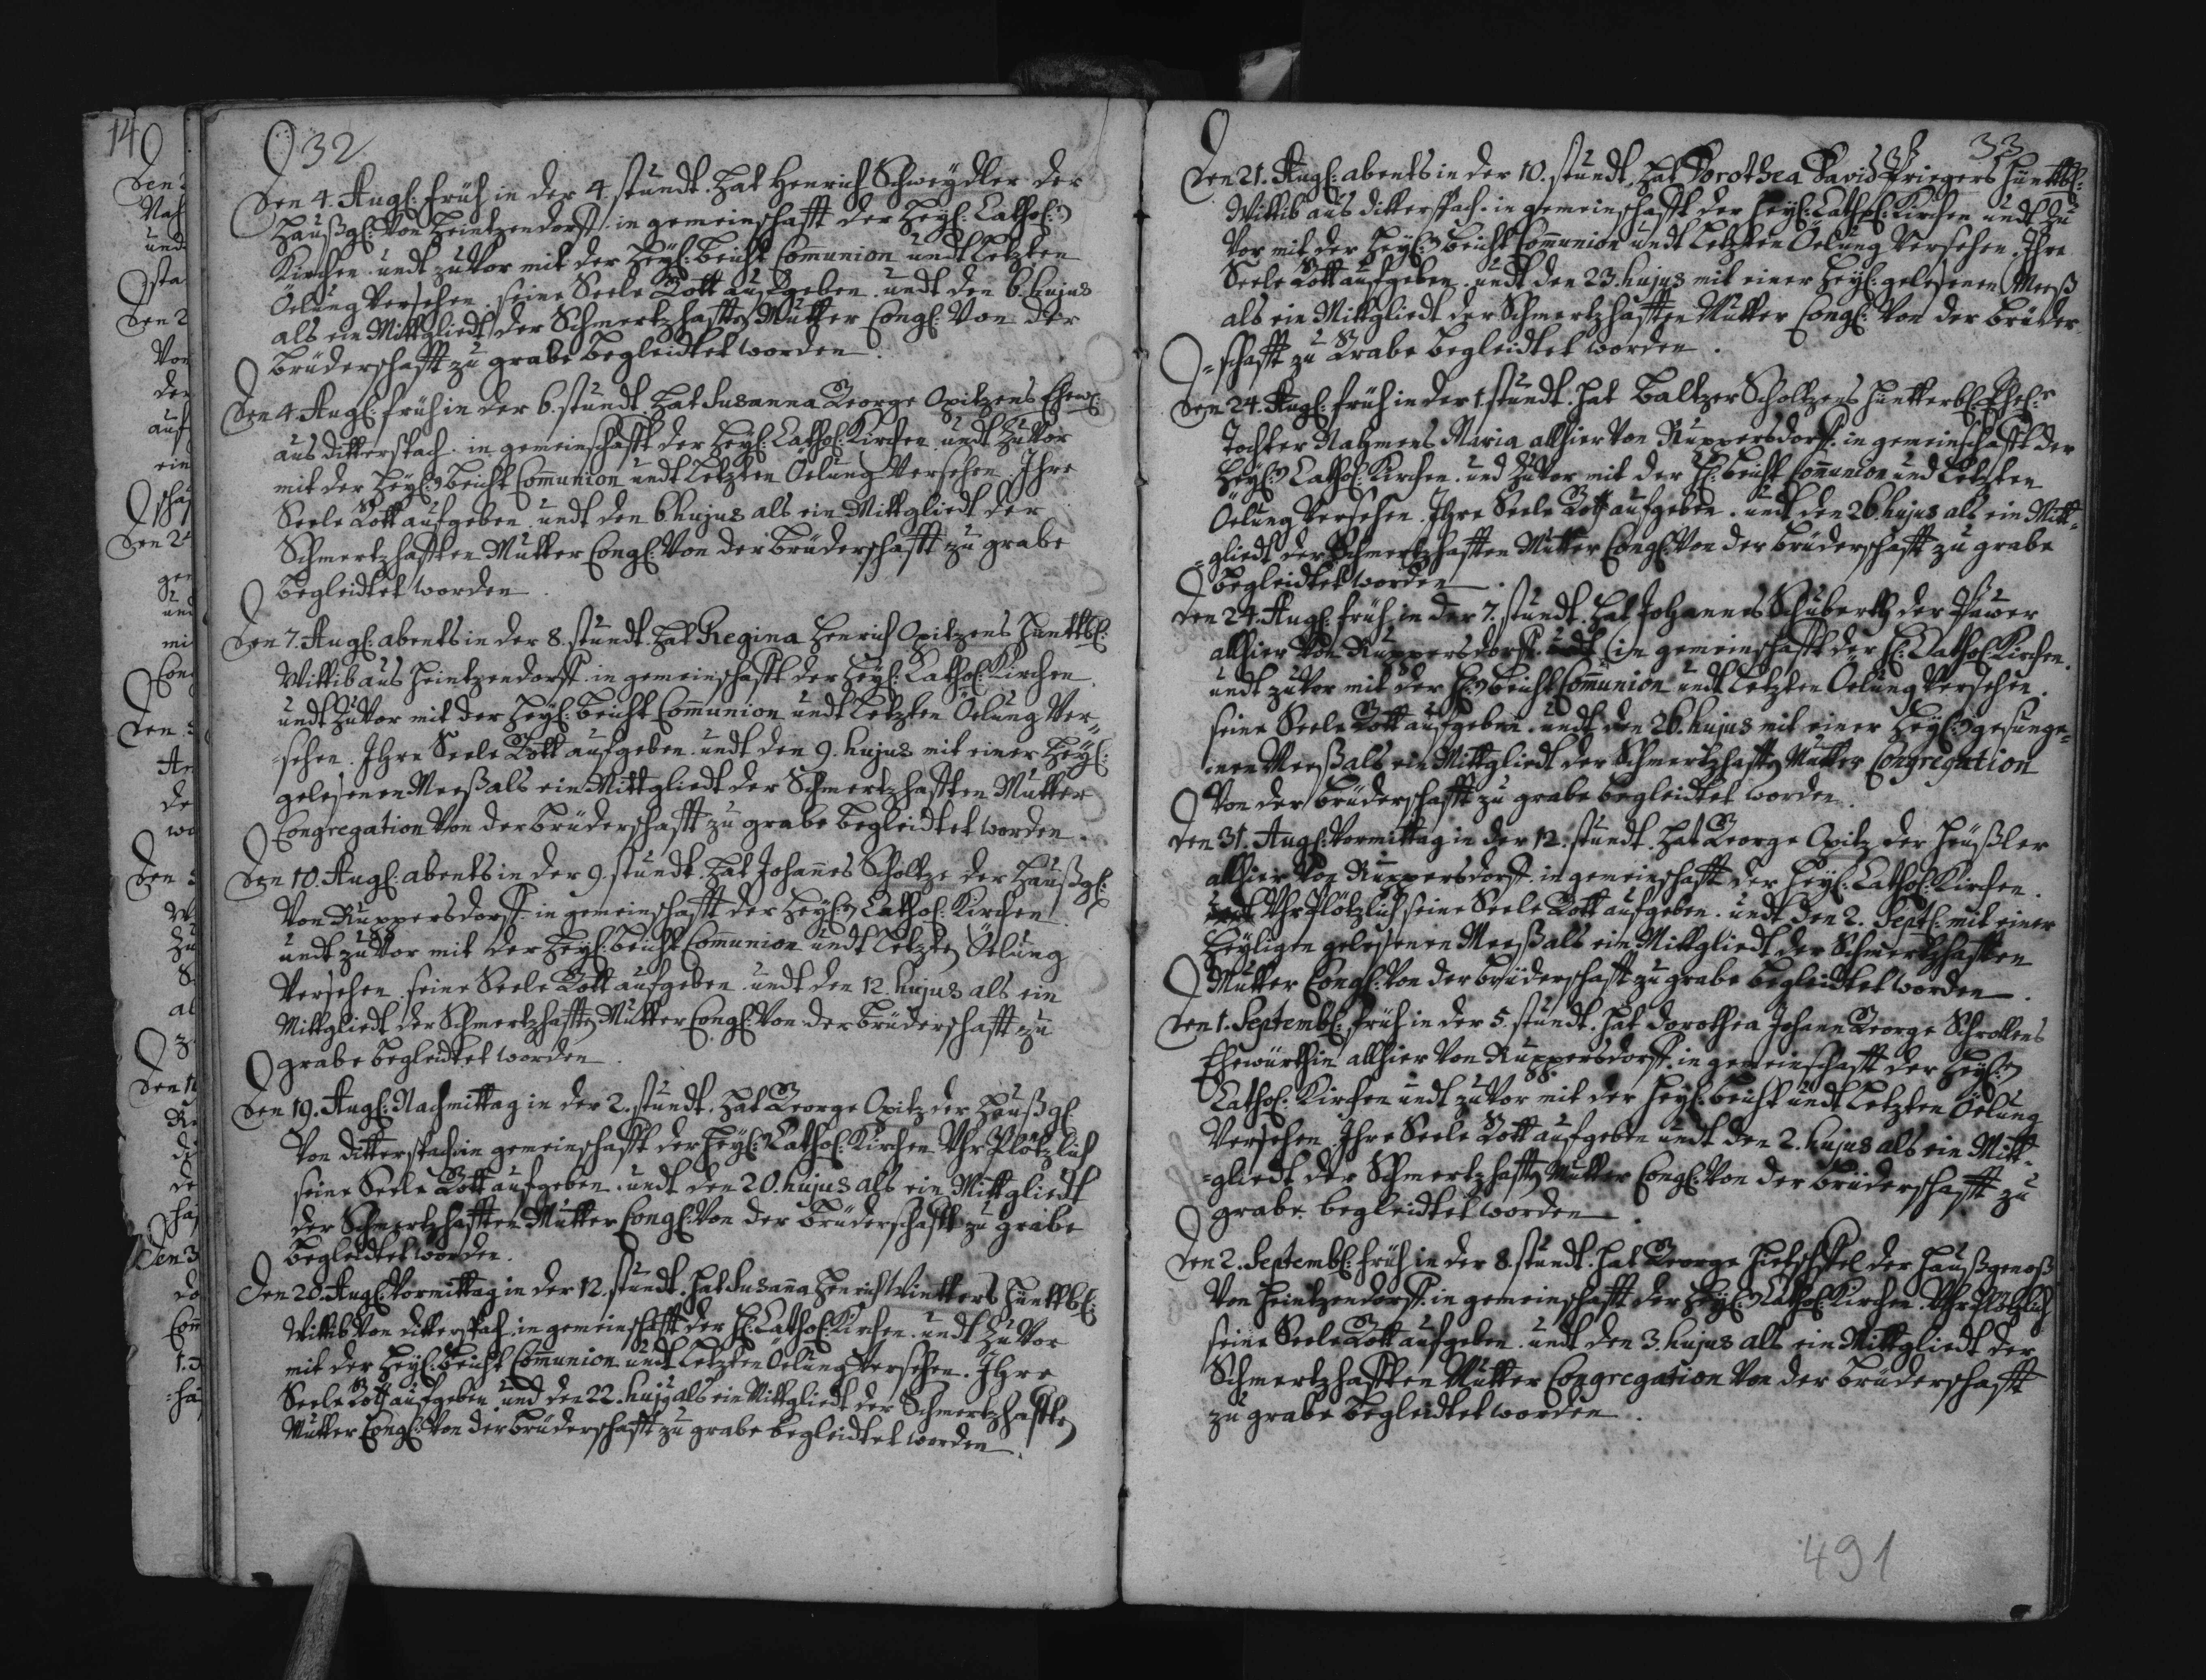 14
32
Den 4. Aug: früh in der 4. stundt. hat Henrich Schweydler der
Haußg: von Heintzendorff. in gemeinschafft der Heyl: Cathol:
Kirchen. undt zuvor mit der Heyl: beicht Communion undt Letzten
Öelung versehen. seine Seele Gott aufgeben. undt den 6. hujus
als ein Mittgliedt der Schmertzhafften Mutter Congl: von der
brüderschafft zu grabe begleidtet worden.
Den 4. Aug: früh in der 6. stundt. hat Susanna George Opitzens Ehew:
aus ditterspach. in gemeinschafft der Heyl: Cathol: Kirchen undt zuvor
mit der Heyl: beicht Communion undt Letzten Öelung versehen. Ihre
Seele Gott aufgeben. undt den 6. hujus als ein Mittgliedt der
Schmertzhafften Mutter Congl: von der brüderschafft zu grabe
begleidtet worden.
Den 7. Aug: abents in der 8. stundt. hat Regina Henrich Opitzens
Wittib aus Heintzendorff. in gemeinschafft der Heyl: Cathol: Kirchen.
undt zuvor mit der Heyl: beicht Communion undt Letzten Öelung ver-
-sehen. Ihre Seele Gott aufgeben. undt den 9. hujus mit einer Heyl:
gelesenen Meeß als ein Mittgliedt der Schmertzhafften Mutter
Congregation von der brüderschafft zu grabe begleidtet worden.
Den 10. Aug: abents in der 9. stundt. hat Johannes Scholtze der Haußg:
von Ruppersdorff. in gemeinschafft der Heyl: Cathol: Kirchen
undt zuvor mit der Heyl: beicht Communion undt Letzten Öelung
versehen. seine Seele Gott aufgeben. undt den 12. hujus als ein
Mittgliedt der Schmertzhafften Mutter Congl: von der brüderschafft zu
grabe begleidtet worden.
Den 19. Aug: Nachmittag in der 2. stundt. hat George Opitz der Haußg:
von ditterspach in gemeinschafft der Heyl: Cathol: Kirchen Uhr Plötzlich
seine Seele Gott aufgeben. undt den 20. hujus als ein Mittgliedt
der Schmertzhafften Mutter Congl: von der brüderschafft zu grabe
begleidtet worden.
Den 20. Aug: Vormittag in der 12. stundt. hat Susanna Henrich Wintters
Wittib von ditterspach. in gemeinschafft der H: Cathol: Kirchen. undt zuvor
mit der Heyl: beicht Communion undt Letzten Öelung versehen. Ihre
Seele Gott aufgeben. und den 22. hujus als ein Mittgliedt der Schmertzhafften
Mutter Congl: von der brüderschafft zu grabe begleidtet worden.
33
Den 21. Aug: abents in der 10. stundt. hat Dorothea David Kriegers
Wittib aus ditterspach. in gemeinschafft der Heyl: Cathol: Kirchen undt zu
vor mit der Heyl: beicht Communion undt Letzten Öelung versehen. Ihre
Seele Gott aufgeben. undt den 23. hujus mit einer Heyl: gelesenen Meeß
als ein Mittgliedt der Schmertzhafften Mutter Congl: von der brüder
-schafft zu Grabe begleidtet worden.
Den 24. Aug: früh in der 1. stundt. hat Baltzer Scholtzens
Tochter Nahmens Maria allhier von Ruppersdorff. in gemeinschafft der
Heyl: Cathol: Kirchen. und zuvor mit der H: beicht Communion und Letzten
Öelung versehen. Ihre Seele Gott aufgeben. undt den 26. hujus als ein Mitt-
-gliedt der Schmertzhafften Mutter Congl: von der brüderschafft zu grabe
begleidtet worden.
Den 24. Aug: früh in der 7. stundt. hat Johannes Schuberth der Pauer
allhier von Ruppersdorff. in gemeinschafft der H: Cathol: Kirchen.
undt zuvor mit der H: beicht Communion undt Letzten Öelung versehen.
seine Seele Gott aufgeben. undt den 26. hujus mit einer Heyl: gesunge-
-nen Meeß als ein Mittgliedt der Schmertzhafften Mutter Congregation
von der brüderschafft zu grabe begleidtet worden.
Den 31. Aug: Vormittag in der 12. stundt. hat George Opitz der Heußler
allhier von Ruppersdorff. in gemeinschafft der Heyl: Cathol: Kirchen.
Uhr Plötzlich seine Seele Gott aufgeben. undt den 2. Sept: mit einer
Heyligen gelesenen Meeß als ein Mittgliedt der Schmertzhafften
Mutter Congl: von der brüderschafft zu grabe begleidtet worden.
Den 1. Septemb: früh in der 5. stundt. hat Dorothea Johann George Schrollens
Ehewürthin allhier von Ruppersdorff. in gemeinschafft der Heyl:
Cathol: Kirchen undt zuvor mit der Heyl: beicht undt Letzten Öelung
versehen. Ihre Seele Gott aufgeben undt den 2. hujus als ein Mitt-
-gliedt der Schmertzhafften Mutter Congl: von der brüderschafft zu
grabe begleidtet worden.
Den 2. Septemb: früh in der 8. stundt. hat George der Haußgenoß
von Heintzendorff. in gemeinschafft der Heyl: Cathol: Kirchen. Uhr Plötzlich
seine Seele Gott aufgeben. undt den 3. hujus als ein Mittgliedt der
Schmertzhafften Mutter Congregation von der brüderschafft
zu grabe begleidtet worden.
491